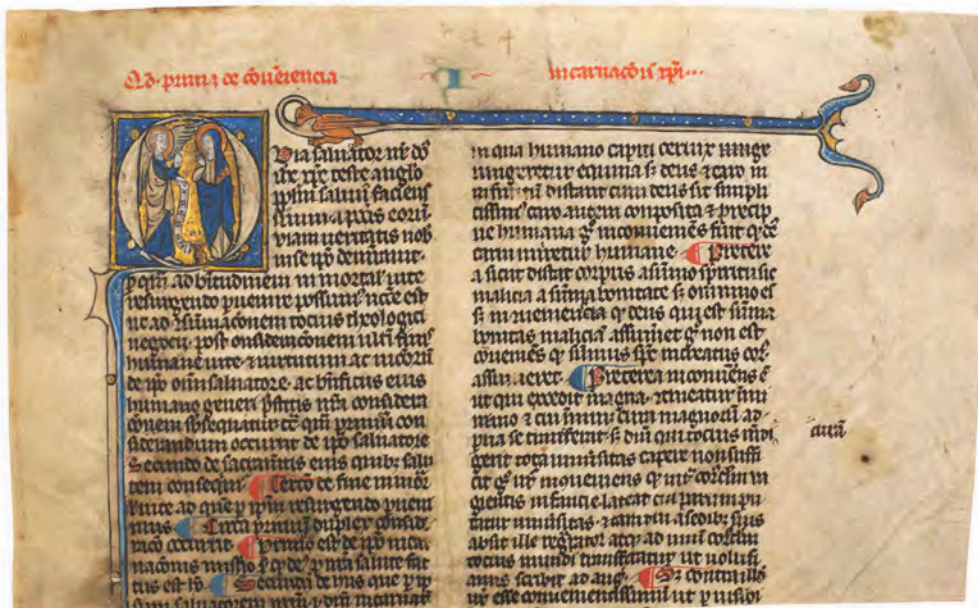 Qõ. prima de cõuẽiencia I incarnacõis xp̃i
Quia saluator nr̃ dñs
ihc xp̃c teste anglo
pplm̃ saluũ faciens
suum a pccis eorũ
uiam ueritatis nob
in se ip̃o demũrauit.
p quã ad bt̃itudinem inmortal uite
resurgendo puenire possum9 necc̃e est
ut ad ɔsũmacõnem tocius theologici
negocij. post ɔnsidẽacõnem ultĩ finis
humane uite ⁊ uirtutum ac uicioru
de ip̃o omĩum saluatore. ac bñficiis eius
humano generi p̃stitis nr̃a considera
cõnem sbsequatur
siderandum occurrit de ip̃o saluatore
Secundo de sacramẽtis eius quib; salu
tem consequi. ¶ Tercõ de fine inmor
l uite ad quẽ p ip̃m resurgendo pueni
mus ¶ Circa primũ duplex consid
racõ occurrit. ¶ Primo est de ip̃o inca
nacõnis mistio
tus est hõ ¶ Secundũ de hiis que p ip
sum saluatorem nrm̃
in qua humano capiti ceruix iunge
iungeretur equina s; deus ⁊ caro in
infinitũ distant cum deus sit simpli
cissim9 caro autem composita ⁊ precip
ue humana g̊ inconueniẽs fuit q̃ de9
carni uniretur humane. ¶ Preterea
sicut distat corpus a sũmo spiritu sic
malicia a sũma bonitate s; omnino eẽt
inɔueniens q̃ deus qui est sũma
bonitas maliciã assumeret g̊ non est
cõueniẽs q̃ sũmus sp̃c increatus cor.
assumeret. ¶ Preterea inconueniẽs ẽ
ut qui excedit magna. ɔtineatur in mi
nimo ⁊ cui inmin; cura magnorũ ad
pua se transferat. s; dñm qui tocius mũdi
gerit tota uniũsitas capere non suffi
cit
curã
gientis infancie lateat cui parum pu
tatur uniũsitas. ⁊ tam diu a sedib; suis
absit ille regnator atq; ad unũ corpusculum
tocius mundi transferatur ut uolusi
anus scribit ad aug. ¶ Sz contra illd
ur esse conuenientissimũ ut p uisibi